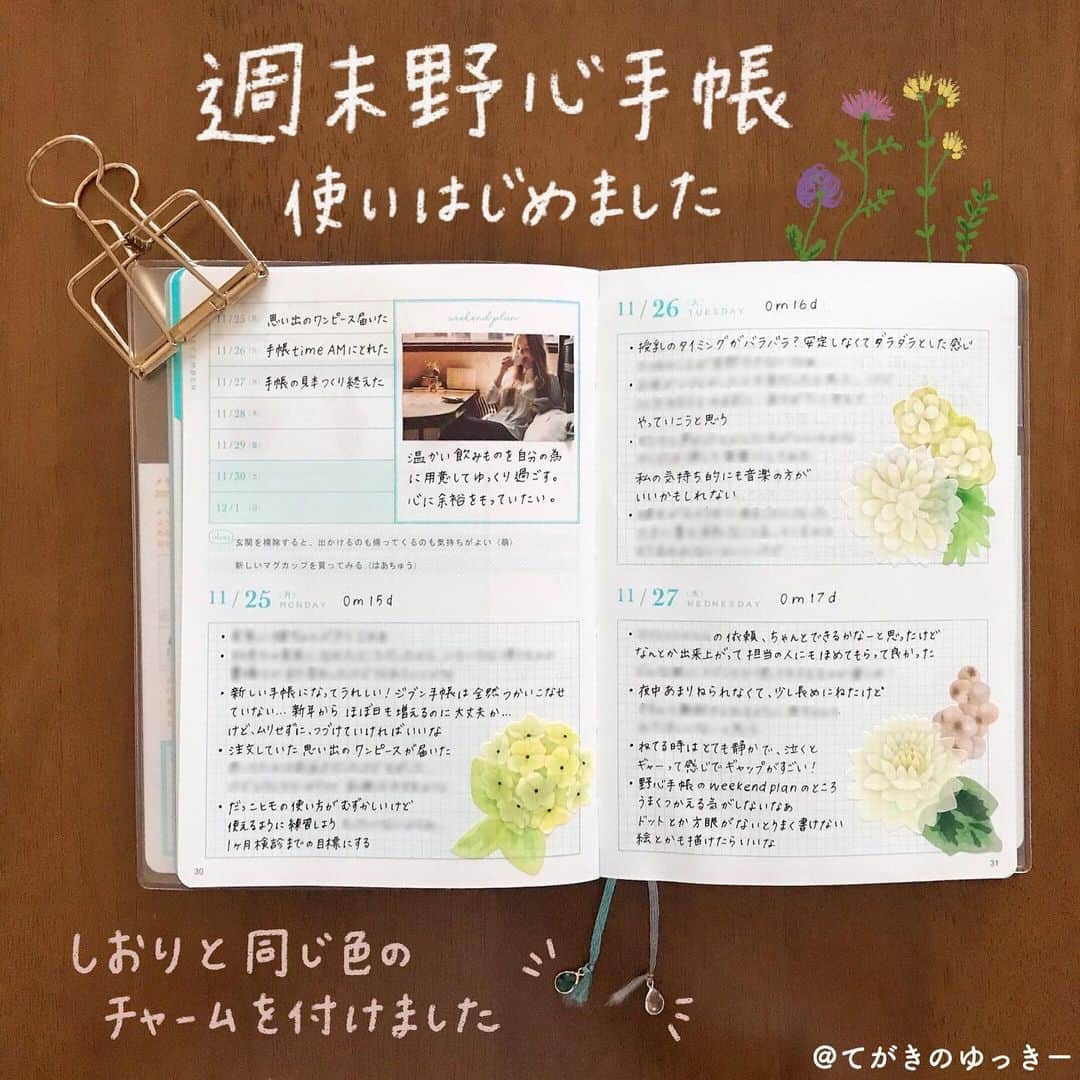 週末野心手帳
使いはじめました
11/25（月） 思い出のワンピース届いた
11/26（火） 手帳time AMにとれた
11/27（水） 手帳の見本つくり終えた
11/28（木）
11/29（金）
11/30（土）
12/1（日）
weekend plan
温かい飲みものを自分の為
に用意してゆっくり過ごす。
心に余裕をもっていたい。
ideas 玄関を掃除すると、出かけるのも帰ってくるのも気持ちがよい（萌）
新しいマグカップを買ってみる（はあちゅう）
11/25（月）MONDAY 0m15d
・新しい手帳になってうれしい！ジブン手帳は全然つかいこなせ
ていない…新年から ほぼ日も増えるのに大丈夫か…
けど、ムリせずに、つづけていければいいな
・注文していた思い出のワンピースが届いた
・だっこヒモの使い方がむずかしいけど
使えるように練習しよう
1ヶ月検診までの目標にする
30
11/26（火）TUESDAY 0m16d
・授乳のタイミングがバラバラ？安定しなくてダラダラとした感じ
やっていこうと思う
私の気持ち的にも音楽の方が
いいかもしれない
11/27（水）WEDNESDAY 0m17d
の依頼、ちゃんとできるかなーと思ったけど
なんとか出来上がって担当の人にもほめてもらって良かった
・夜中あまりねられなくて、少し長めにねたけど
・ねてる時はとても静かで、泣くと
ギャーって感じでギャップがすごい！
・野心手帳のweekend planのところ
うまくつかえる気がしないなあ
ドットとか方眼がないとうまく書けない
絵とかも描けたらいいな
31
しおりと同じ色の
チャームを付けました
@てがきのゆっきー